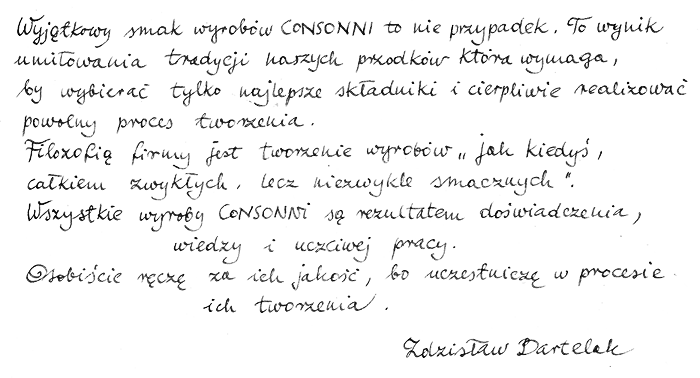 Wyjątkowy smak wyrobów CONSONNI to nie przypadek. To wynik
umiłowania tradycji naszych przodków która wymaga,
by wybierać tylko najlepsze składniki i cierpliwie realizować
powolny proces tworzenia.
Filozofią firmy jest tworzenie wyrobów „jak kiedyś,
całkiem zwykłych, lecz niezwykle smacznych".
Wszystkie wyroby CONSONNi są rezultatem doświadczenia,
wiedzy i uczciwej pracy.
Osobiście ręczę za ich jakość, bo uczestniczę w procesie
ich tworzenia.
Zdzisław Bartelak